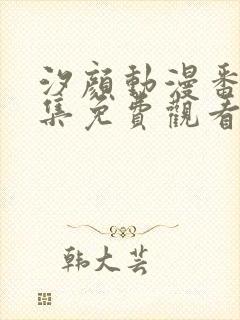 汐顏動漫番
集免費觀看
韩大芸